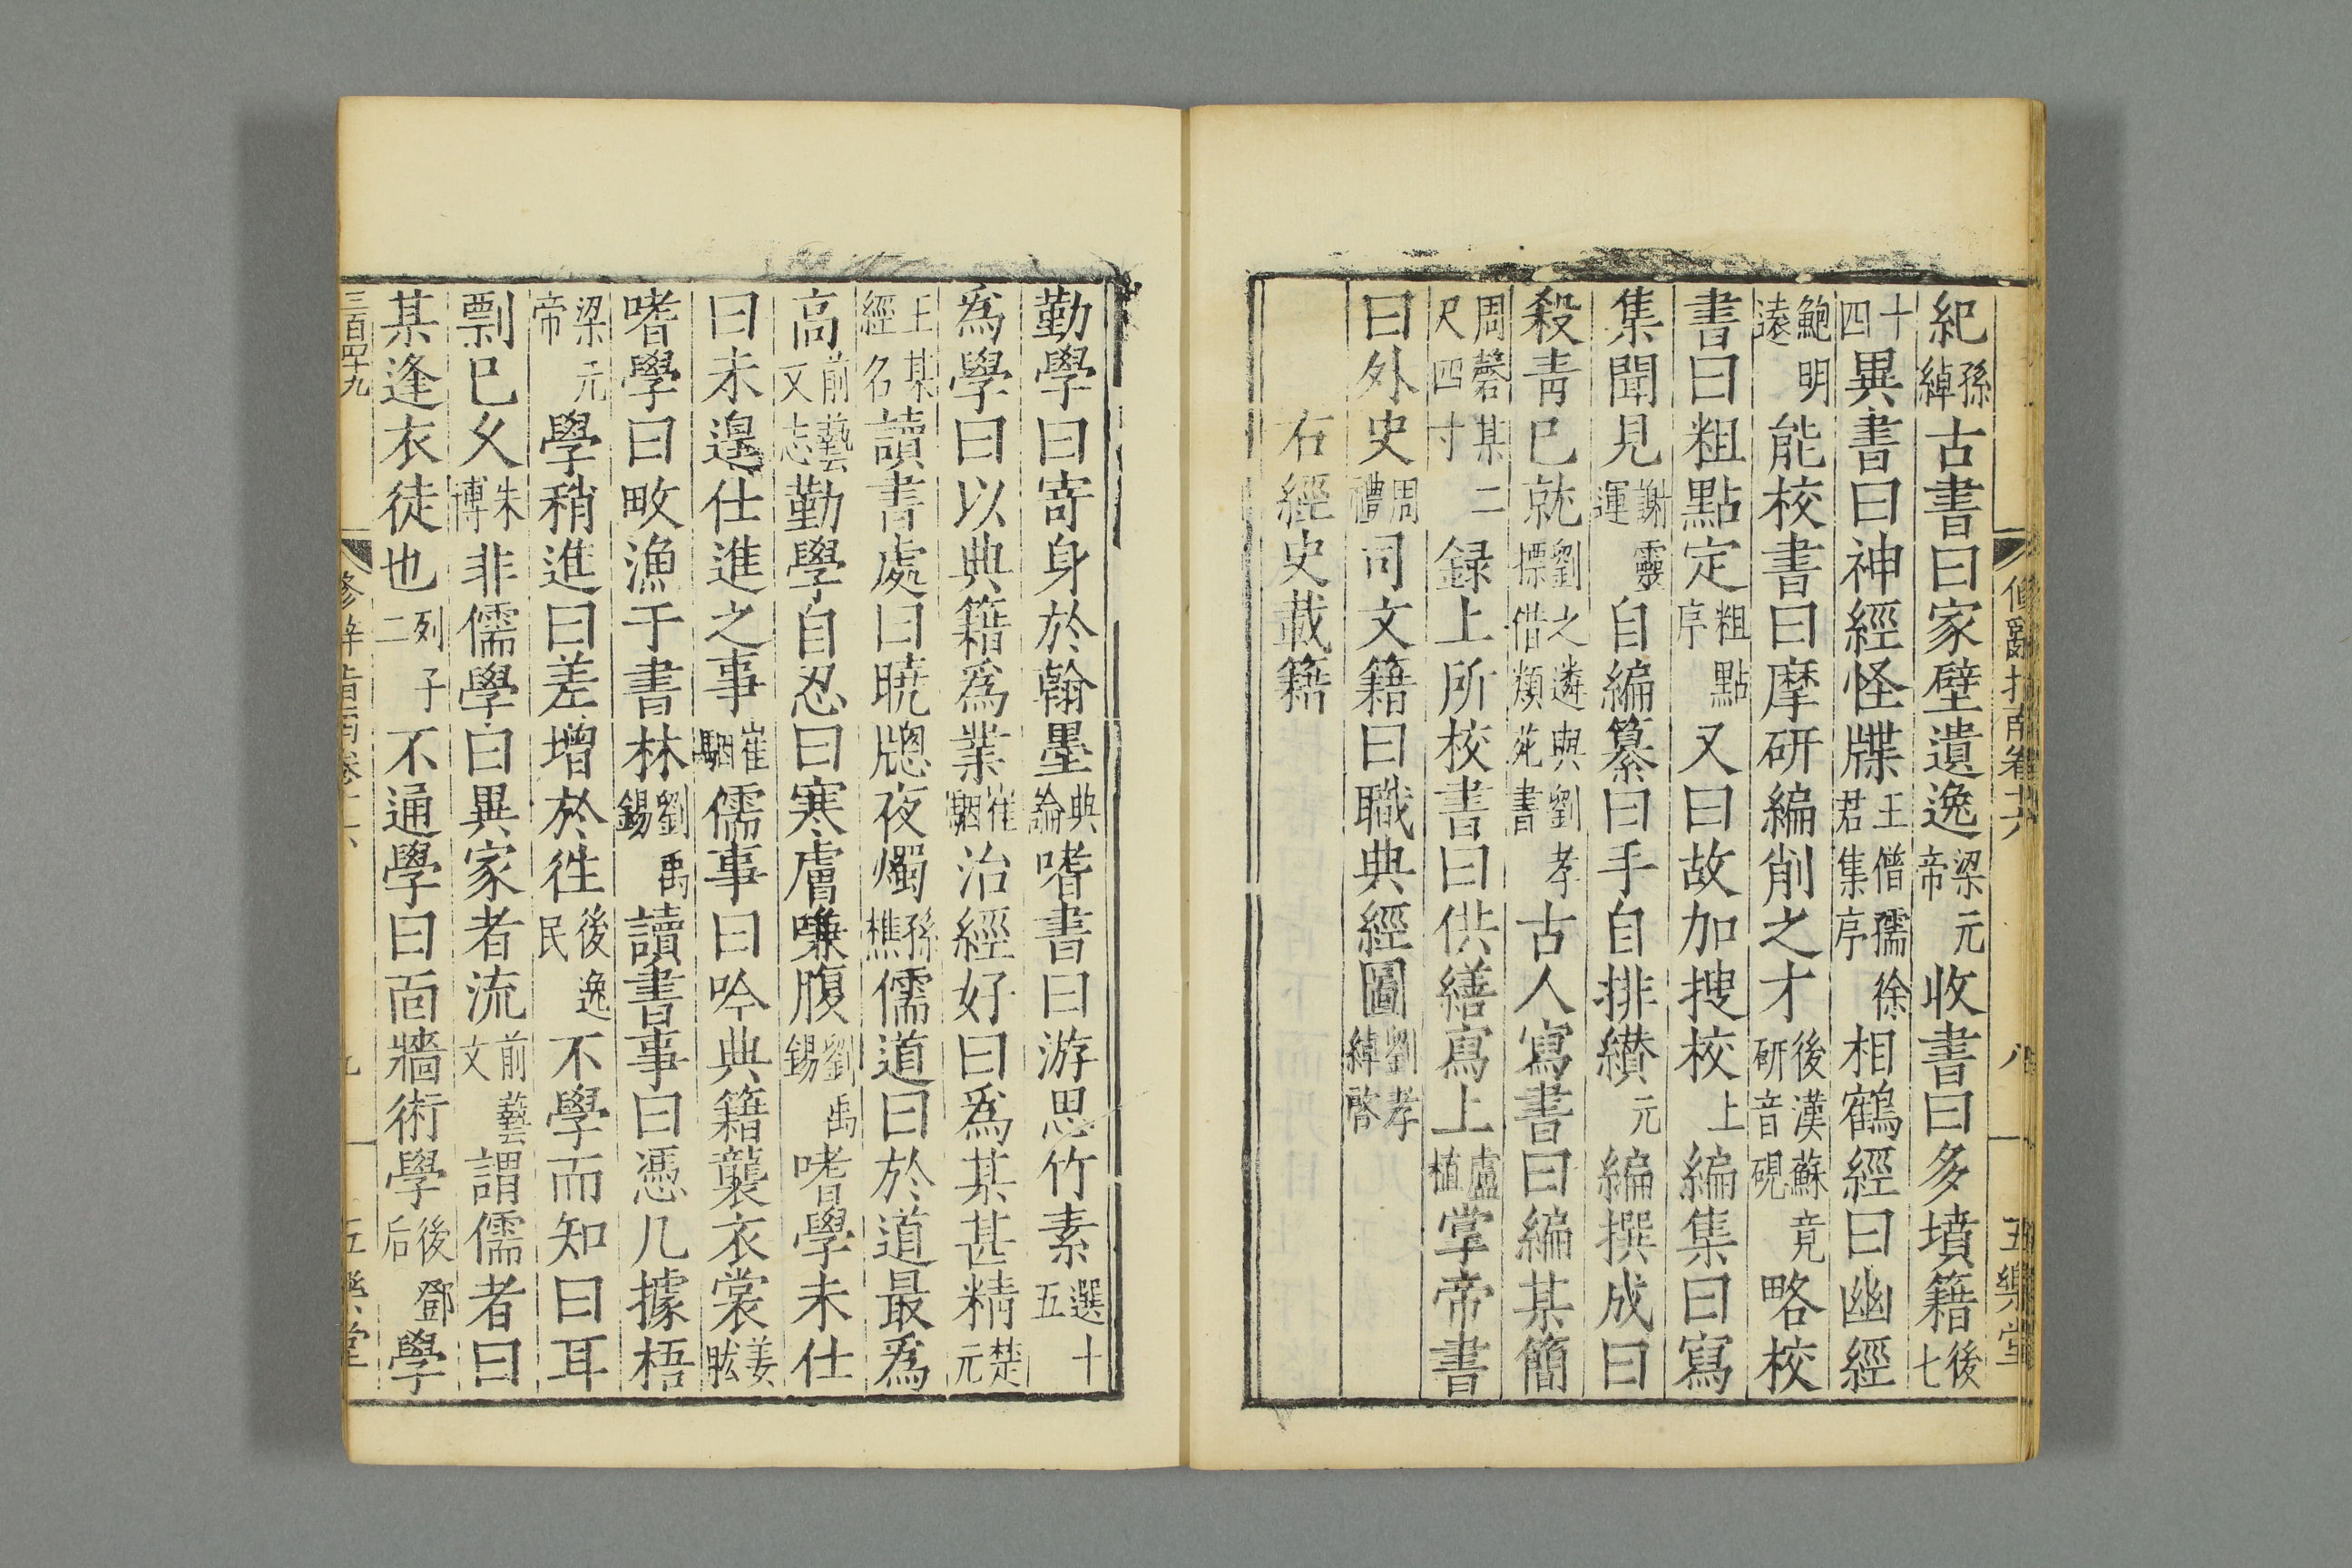 紀孫綽古書曰家壁遺逸梁元帝收書曰多墳籍後七
十四異書曰神經怪牒王僧孺徐君集序相鶴經曰幽經
鮑明遠能校書曰摩研編削之才後漢蘇竟研音硯略校
書曰粗點定粗點序又曰故加搜校上編集曰寫
集聞見謝靈運自編纂曰手自排纉元編撰成曰
殺青已就劉之遴與劉孝標借類苑書古人寫書曰編某簡
周磬某二尺四寸録上所校書曰供繕寫上盧植掌帝書
曰外史周禮司文籍曰職典經圖劉孝綽啓
右經史載籍
脩辭指南卷十六 八 五樂堂
勤學曰寄身於翰墨典論嗜書曰游思竹素選十五
爲學曰以典籍爲業崔駰治經好曰爲某甚精楚元
王某經名讀書處曰曉牕夜燭孫樵儒道曰於道最爲
高前藝文志勤學自忍曰寒膚嗛腹劉禹錫嗜學未仕
曰未遑仕進之事崔駰儒事曰吟典籍襲衣裳姜肱
嗜學曰畋漁于書林劉禹錫讀書事曰憑几據梧
梁元帝學稍進曰差增於徃後逸民不學而知曰耳
剽已久朱博非儒學曰異家者流前藝文謂儒者曰
某逢衣徒也列子二不通學曰面牆術學後鄧后學
三百四十九 修辭指南卷十六 九 五樂堂